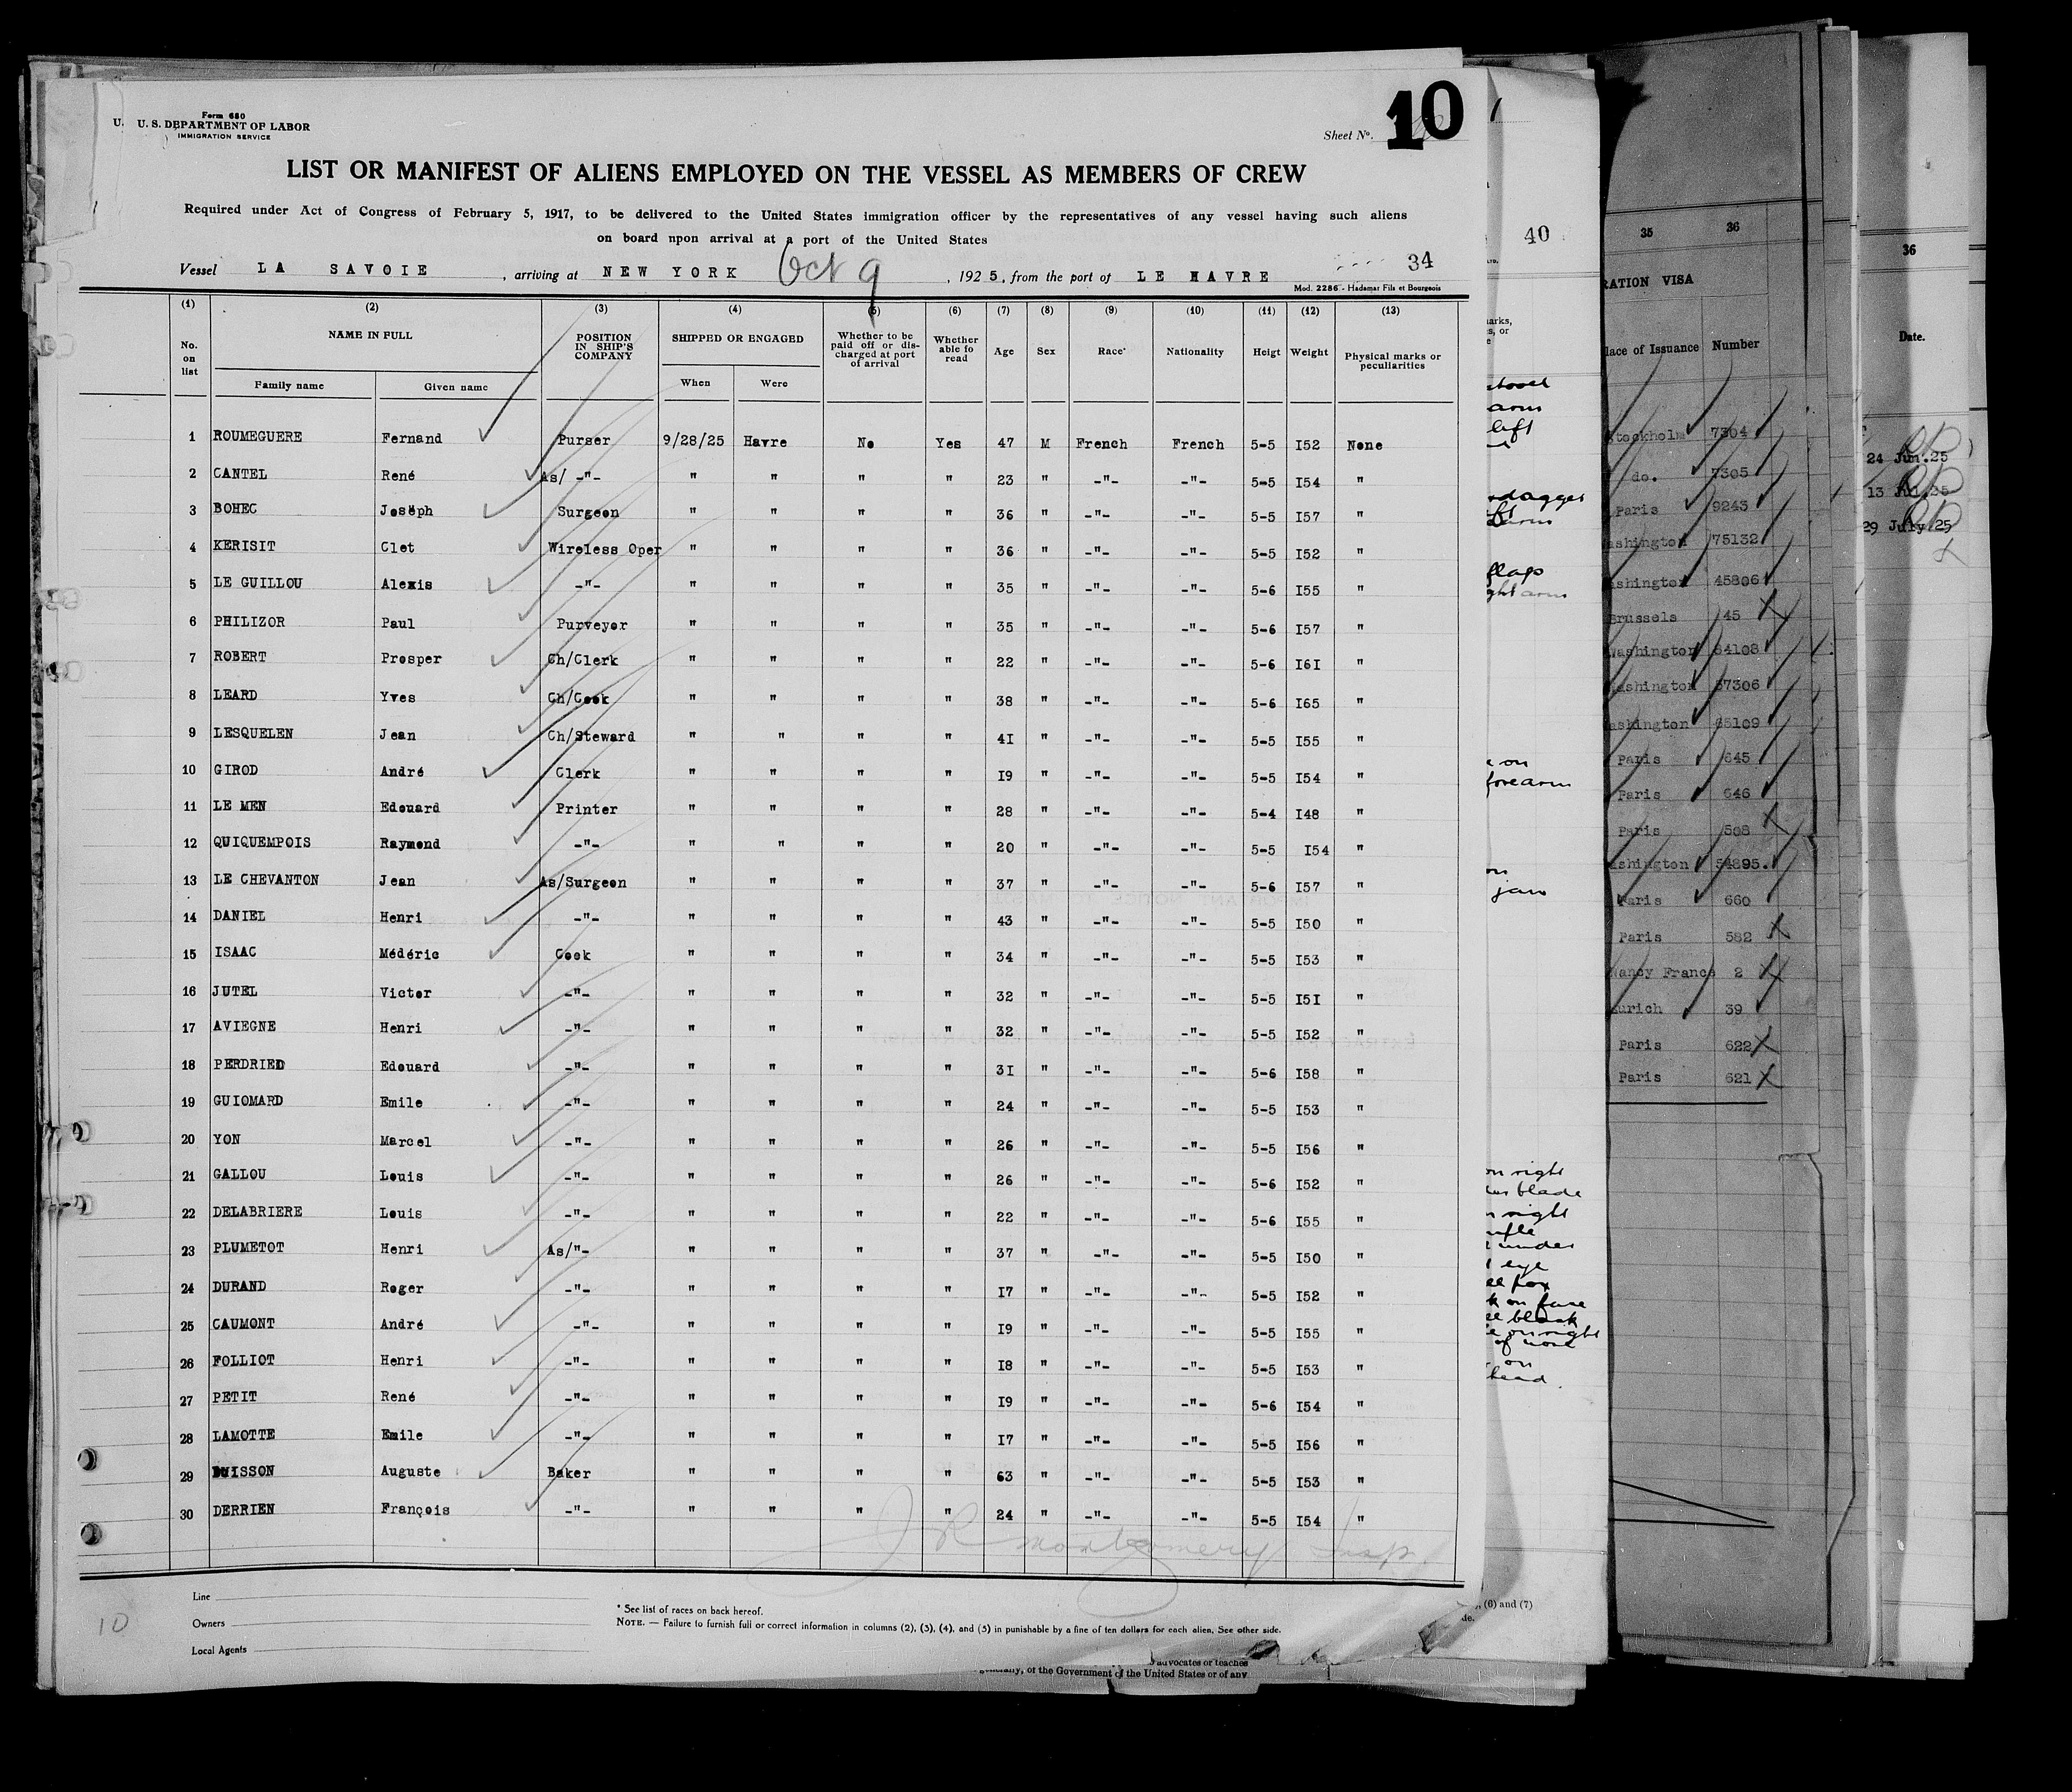 Form 680
U. U. S. DEPARTMENT OF LABOR
IMMIGRATION SERVICE
Sheet No. 10
LIST OR MANIFEST OF ALIENS EMPLOYED ON THE VESSEL AS MEMBERS OF CREW
Required under Act of Congress of February 5, 1917, to be delivered to the United States immigration officer by the representatives of any vessel having such aliens
on board npon arrival at a port of the United States
Vessel LA SAVOIE , arriving at NEW YORK Oct 9 , 1925, from the port of LE HAVRE 34
Mod. 2286 - Hadamar Fils et Bourgeois
(1) (2) (3) (4) (5) (6) (7) (8) (9) (10) (11) (12) (13)
No. on list NAME IN FULL POSITION IN SHIP'S COMPANY SHIPPED OR ENGAGED Whether to be paid off or discharged at port of arrival Whether able to read Age Sex Race* Nationality Heigt Weight Physical marks or peculiarities
Family name Given name When Were
1 ROUMEGUERE Fernand Purser 9/28/25 Havre No Yes 47 M French French 5-5 I52 None
2 CANTEL René As/ -"- " " " " 23 " -"- -"- 5-5 I54 "
3 BOHEC Joseph Surgeon " " " " 36 " -"- -"- 5-5 I57 "
4 KERISIT Clet Wireless Oper " " " " 36 " -"- -"- 5-5 I52 "
5 LE GUILLOU Alexis -"- " " " " 35 " -"- -"- 5-6 I55 "
6 PHILIZOR Paul Purveyor " " " " 35 " -"- -"- 5-6 I57 "
7 ROBERT Prosper Ch/Clerk " " " " 22 " -"- -"- 5-6 I6I "
8 LEARD Yves Ch/Cook " " " " 38 " -"- -"- 5-6 I65 "
9 LESQUELEN Jean Ch/Steward " " " " 4I " -"- -"- 5-5 I55 "
10 GIROD André Clerk " " " " I9 " -"- -"- 5-5 I54 "
11 LE MEN Edouard Printer " " " " 28 " -"- -"- 5-4 I48 "
12 QUIQUEMPOIS Raymond -"- " " " " 20 " -"- -"- 5-5 I54 "
13 LE CHEVANTON Jean As/Surgeon " " " " 37 " -"- -"- 5-6 I57 "
14 DANIEL Henri -"- " " " " 43 " -"- -"- 5-5 I50 "
15 ISAAC Médéric Cook " " " " 34 " -"- -"- 5-5 I53 "
16 JUTEL Victor -"- " " " " 32 " -"- -"- 5-5 I5I "
17 AVIEGNE Henri -"- " " " " 32 " -"- -"- 5-5 I52 "
18 PERDRIED Edouard -"- " " " " 3I " -"- -"- 5-6 I58 "
19 GUIOMARD Emile -"- " " " " 24 " -"- -"- 5-5 I53 "
20 YON Marcel -"- " " " " 26 " -"- -"- 5-5 I56 "
21 GALLOU Louis -"- " " " " 26 " -"- -"- 5-6 I52 "
22 DELABRIERE Louis -"- " " " " 22 " -"- -"- 5-6 I55 "
23 PLUMETOT Henri As/"- " " " " 37 " -"- -"- 5-5 I50 "
24 DURAND Roger -"- " " " " I7 " -"- -"- 5-5 I52 "
25 CAUMONT André -"- " " " " I9 " -"- -"- 5-5 I55 "
26 FOLLIOT Henri -"- " " " " I8 " -"- -"- 5-5 I53 "
27 PETIT René -"- " " " " I9 " -"- -"- 5-6 I54 "
28 LAMOTTE Emile -"- " " " " I7 " -"- -"- 5-5 I56 "
29 BUISSON Auguste Baker " " " " 63 " -"- -"- 5-5 I53 "
30 DERRIEN François -"- " " " " 24 " -"- -"- 5-5 I54 "
J R Montgomery Insp.
Line
Owners
Local Agents
10
* See list of races on back hereof.
NOTE. — Failure to furnish full or correct information in columns (2), (3), (4), and (5) in punishable by a fine of ten dollars for each alien. See other side.
advocates or teaches
, of the Government of the United States or of any
40
arms
left
dagger
flags
on
forearm
jaw
on right
blade
right
under
eye
on face
black
on right
of nose
on
head.
(6) and (7)
35 36
RATION VISA
lace of Issuance Number
Stockholm 7304
do. 7305
Paris 9243
ashington 75132
ashington 45806
Brussels 45
Washington 84108
ashington 87306
ashington 68109
Paris 645
Paris 646
Paris 508
ashington 54895.
Paris 660
Paris 582
Nancy France 2
urich 39
Paris 622
Paris 621
36
Date.
24 Jun.25
13 Jul.25
29 July.25